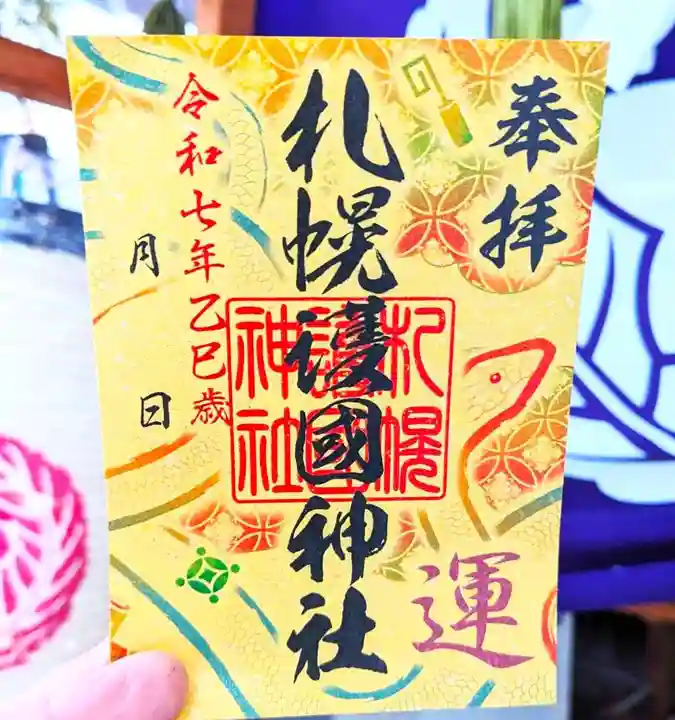 奉拝
札幌護國神社
札幌護国神社
令和七年乙巳歳
月 日
運